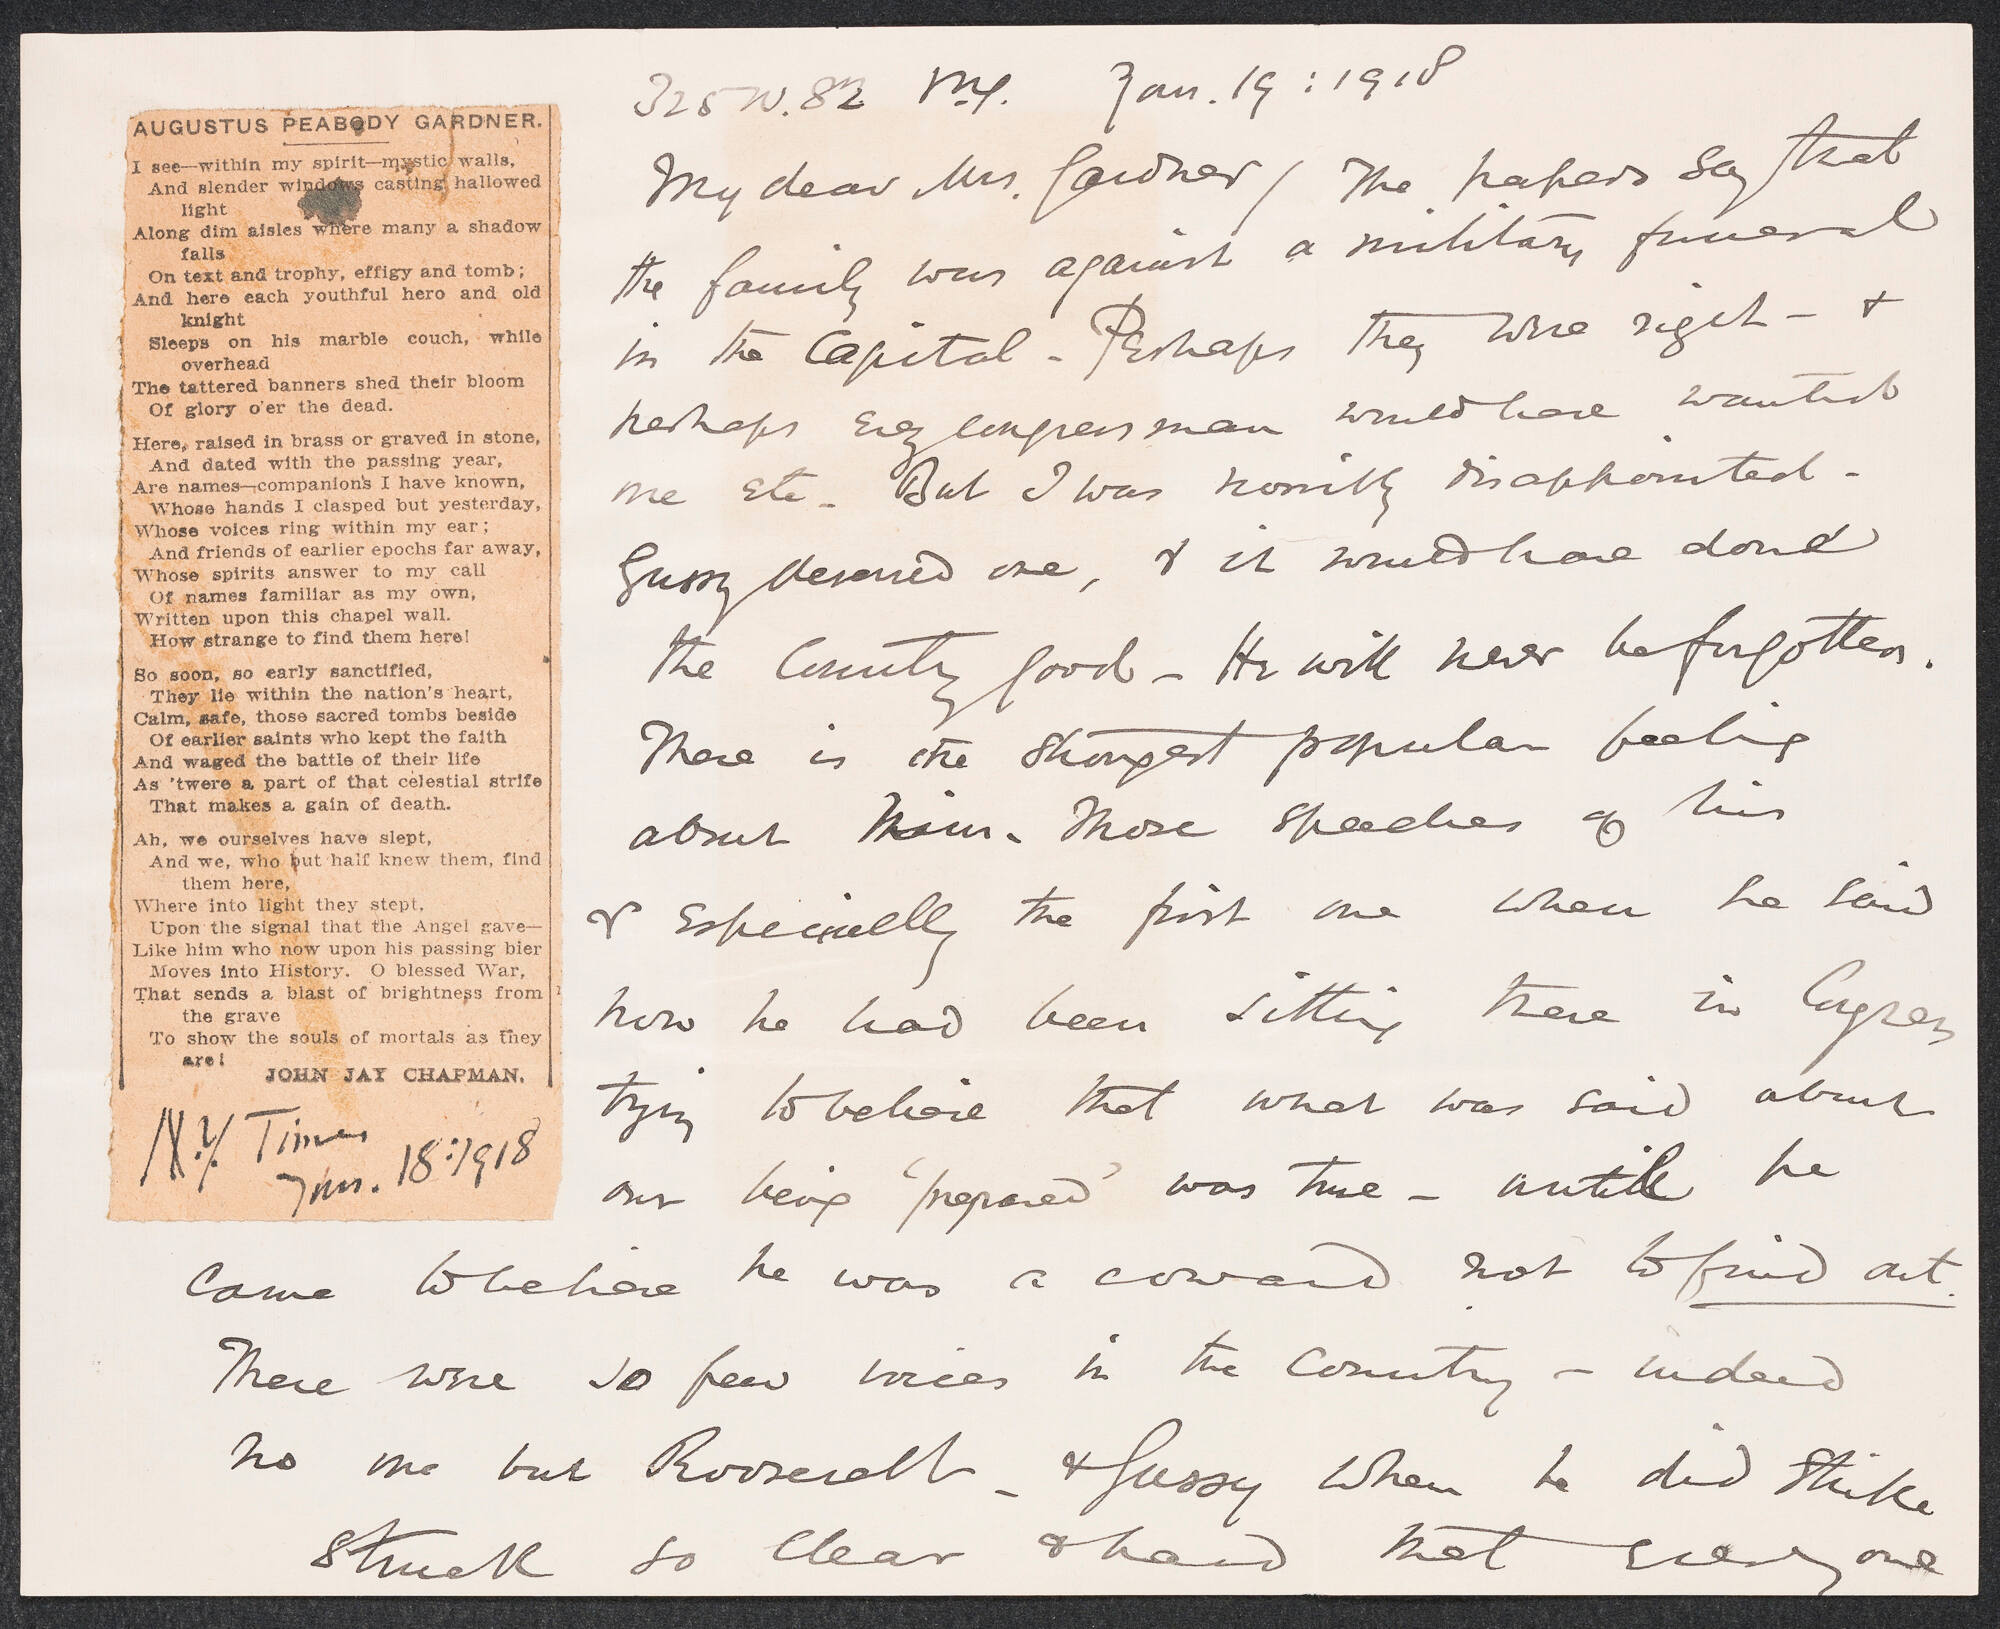 AUGUSTUS PEABODY GARDNER.
I see—within my spirit—mystic walls,
And slender windows casting hallowed
light
Along dim aisles where many a shadow
falls
On text and trophy, effigy and tomb;
And here each youthful hero and old
knight
Sleeps on his marble couch, while
overhead
The tattered banners shed their bloom
Of glory o'er the dead.
Here, raised in brass or graved in stone,
And dated with the passing year,
Are names—companions I have known,
Whose hands I clasped but yesterday,
Whose voices ring within my ear;
And friends of earlier epochs far away,
Whose spirits answer to my call
Of names familiar as my own,
Written upon this chapel wall.
How strange to find them here!
So soon, so early sanctified,
They lie within the nation's heart,
Calm, safe, those sacred tombs beside
Of earlier saints who kept the faith
And waged the battle of their life
As 'twere a part of that celestial strife
That makes a gain of death.
Ah, we ourselves have slept,
And we, who but half knew them, find
them here,
Where into light they stept,
Upon the signal that the Angel gave—
Like him who now upon his passing bier
Moves into History. O blessed War,
That sends a blast of brightness from
the grave
To show the souls of mortals as they
are!
JOHN JAY CHAPMAN.
N.Y. Times
Jan. 18:1918
325 W. 82 N.Y. Jan. 19:1918
My dear Mrs. Gardner / The papers say that
the family was against a military funeral
in the Capital - Perhaps they were right - &
perhaps every congressman would have wanted
one etc - But I was horribly disappointed -
Gussy deserved one, & it would have done
the Country good - He will never be forgotten.
There is the strongest popular feeling
about him - Those speeches of his
& especially the first one when he said
how he had been sitting there in Congress
trying to believe that what was said about
our being 'prepared' was true - until he
came to believe he was a coward not to find out.
There were so few voices in the Country - indeed
no one but Roosevelt - & Gussy when he did strike
struck so clear & hard that every one